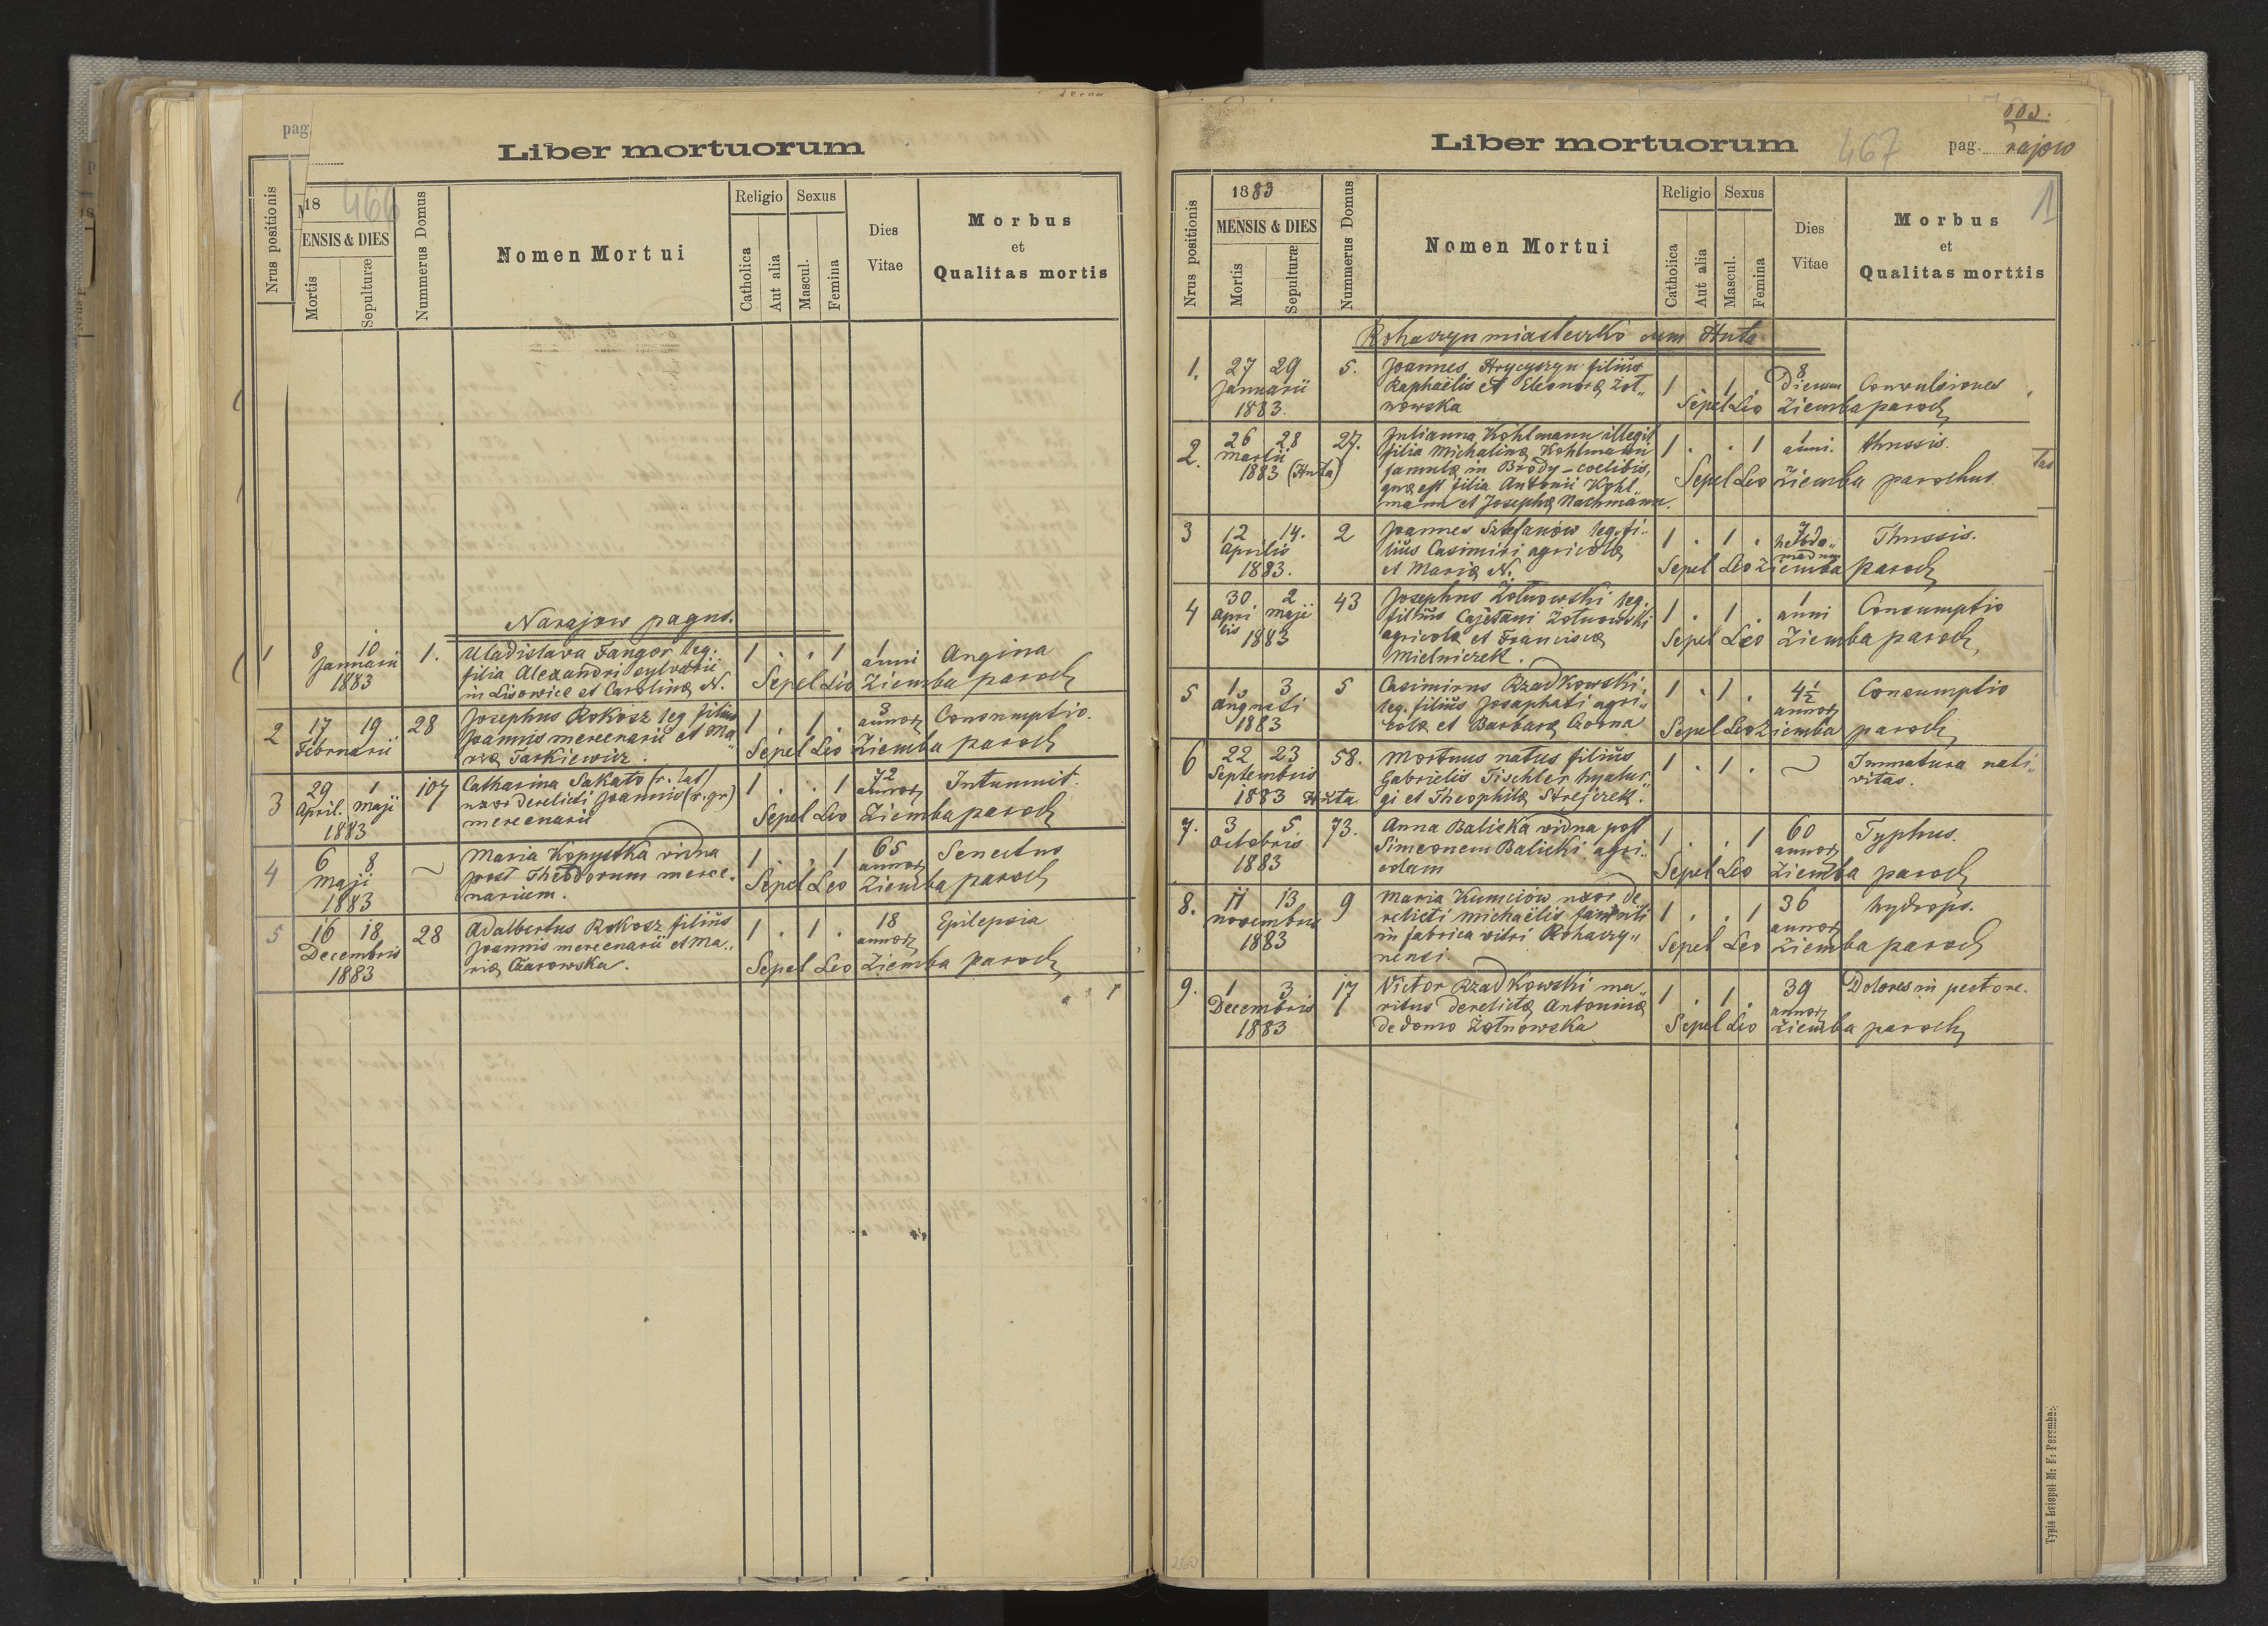 pag.
Liber mortuorum
Nrus positionis
18
466
MENSIS & DIES
Mortis
Sepulturæ
Nummerus Domus
Nomen Mortui
Religio
Catholica
Aut alia
Sexus
Mascul.
Femina
Dies Vitae
Morbus
et
Qualitas mortis
Narajow pagus.
1 8 10 1. Uladislava Fangor leg. 1 . . 1 1 Angina
Januarii filia Alexandri sylvarii anni
1883 in Lisowice et Carolinæ N. Sepel Leo Ziemba paroch
2 17 19 28 Josephus Rokosz leg filius 1 . 1 . 3 Consumptio.
Februarii Joannis mercenarii et Ma„ annor
riæ Tarkiewicz. Sepel Leo Ziemba paroch
3 29 1 107 Catharina Sakato (r. lat) 1 . . 1 72 Intumuit.
April. Maji uxor derelicti Joannis (r. gr) annor
1883 mercenarii Sepel Leo Ziemba paroch
4 6 8 Maria Kopystka vidua 1 . . 1 65 Senectus
Maji post Theodorum merce„ annor
1883 narium. Sepel Leo Ziemba paroch
5 16 18 28 Adalbertus Rokosz filius 1 . 1 . 18 Epilepsia
Decembris Joannis mercenarii et Ma„ annor
1883 riæ Czarowska. Sepel Leo Ziemba paroch
Liber mortuorum
467
pag. rajow
1
Nrus positionis
1883
MENSIS & DIES
Mortis
Sepulturæ
Nummerus Domus
Nomen Mortui
Religio
Catholica
Aut alia
Sexus
Mascul.
Femina
Dies Vitae
Morbus
et
Qualitas morttis
Rohaczyn miasteczko cum Huta
1. 27 29 5. Joannes Hrycyszyn filius 8
Januarii Raphaëlis et Eleonoræ Żoł„ 1 . 1 . Dierum Convulsiones
1883. nowska Sepel Leo Ziemba paroch
2. 26 28 27. Julianna Kohlmann illegit 1 . . 1 1 thussis.
Martii filia Michalinæ Kohlmann anni.
1883 (Huta) famulæ in Brody - coelibis, Sepel Leo Ziemba parochus
quæ est filia Antonii Kohl„
mann et Josephæ Nachmann.
3 12 14. 2 Joannes Sztefanow leg. fi„ 1 . 1 . 7 Thussis.
Aprilis lius Casimiri agricolæ hebdo„
1883. et Mariæ N. madum Sepel Leo Ziemba paroch
4 30 2 43 Josephus Żołnowski leg. 1 . 1 . 1 Consumptio
Apri Maji filius Cajetani Żołnowski anni
lis 1883 agricolæ et Franciscæ Sepel Leo Ziemba paroch
Mielniczek.
5 1. 3 5 Casimirus Rzadkowski, 1 . 1 . 4½ Consumptio
Augusti leg. filius Josaphati agri„ annor
1883 colæ et Barbaræ Sepel Leo Ziemba paroch
6 22 23 58. Mortuus natus filius 1 . 1 . Immatura nati„
Septembris Gabrielis Tischler hyalur„ vitas.
1883 Huta gi et Theophilæ Strejczek.
7. 3 5 73. Anna Balicka vidua post 1 . . 1 60 Typhus.
Octobris Simeonem Balicki agri„ annor
1883 colam Sepel Leo Ziemba paroch
8. 11 13 9 Maria Kumciów uxor de„ 1 . . 1 36 hydrops.
Novembris relicti Michaëlis famuli annor
1883 in fabrica vitri Rohaczy„ Sepel Leo Ziemba paroch
nensi.
9. 1 3 17 Victor Rzadkowski ma„ 1 . 1 . 39 Dolores in pectore.
Decembris ritus derelictæ Antoninæ annor
1883 de domo Żołnowska Sepel Leo Ziemba paroch
Typis Leiopol M: F: Poremba.
260